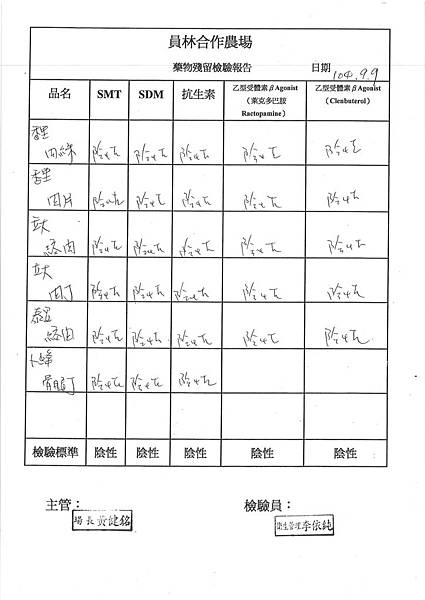 員林合作農場
藥物殘留檢驗報告 日期 104.9.9
品名 SMT SDM 抗生素 乙型受體素βAgonist（萊克多巴胺 Ractopamine） 乙型受體素βAgonist（Clenbuterol）
肉絲 陰性 陰性 陰性 陰性 陰性
肉片 陰性 陰性 陰性 陰性 陰性
立大
絞肉 陰性 陰性 陰性 陰性 陰性
立大
肉丁 陰性 陰性 陰性 陰性 陰性
絞肉 陰性 陰性 陰性 陰性 陰性
卜蜂
骨腿丁 陰性 陰性 陰性
檢驗標準 陰性 陰性 陰性 陰性 陰性
主管： 檢驗員：
場長黃健銘 衛生管理李依純